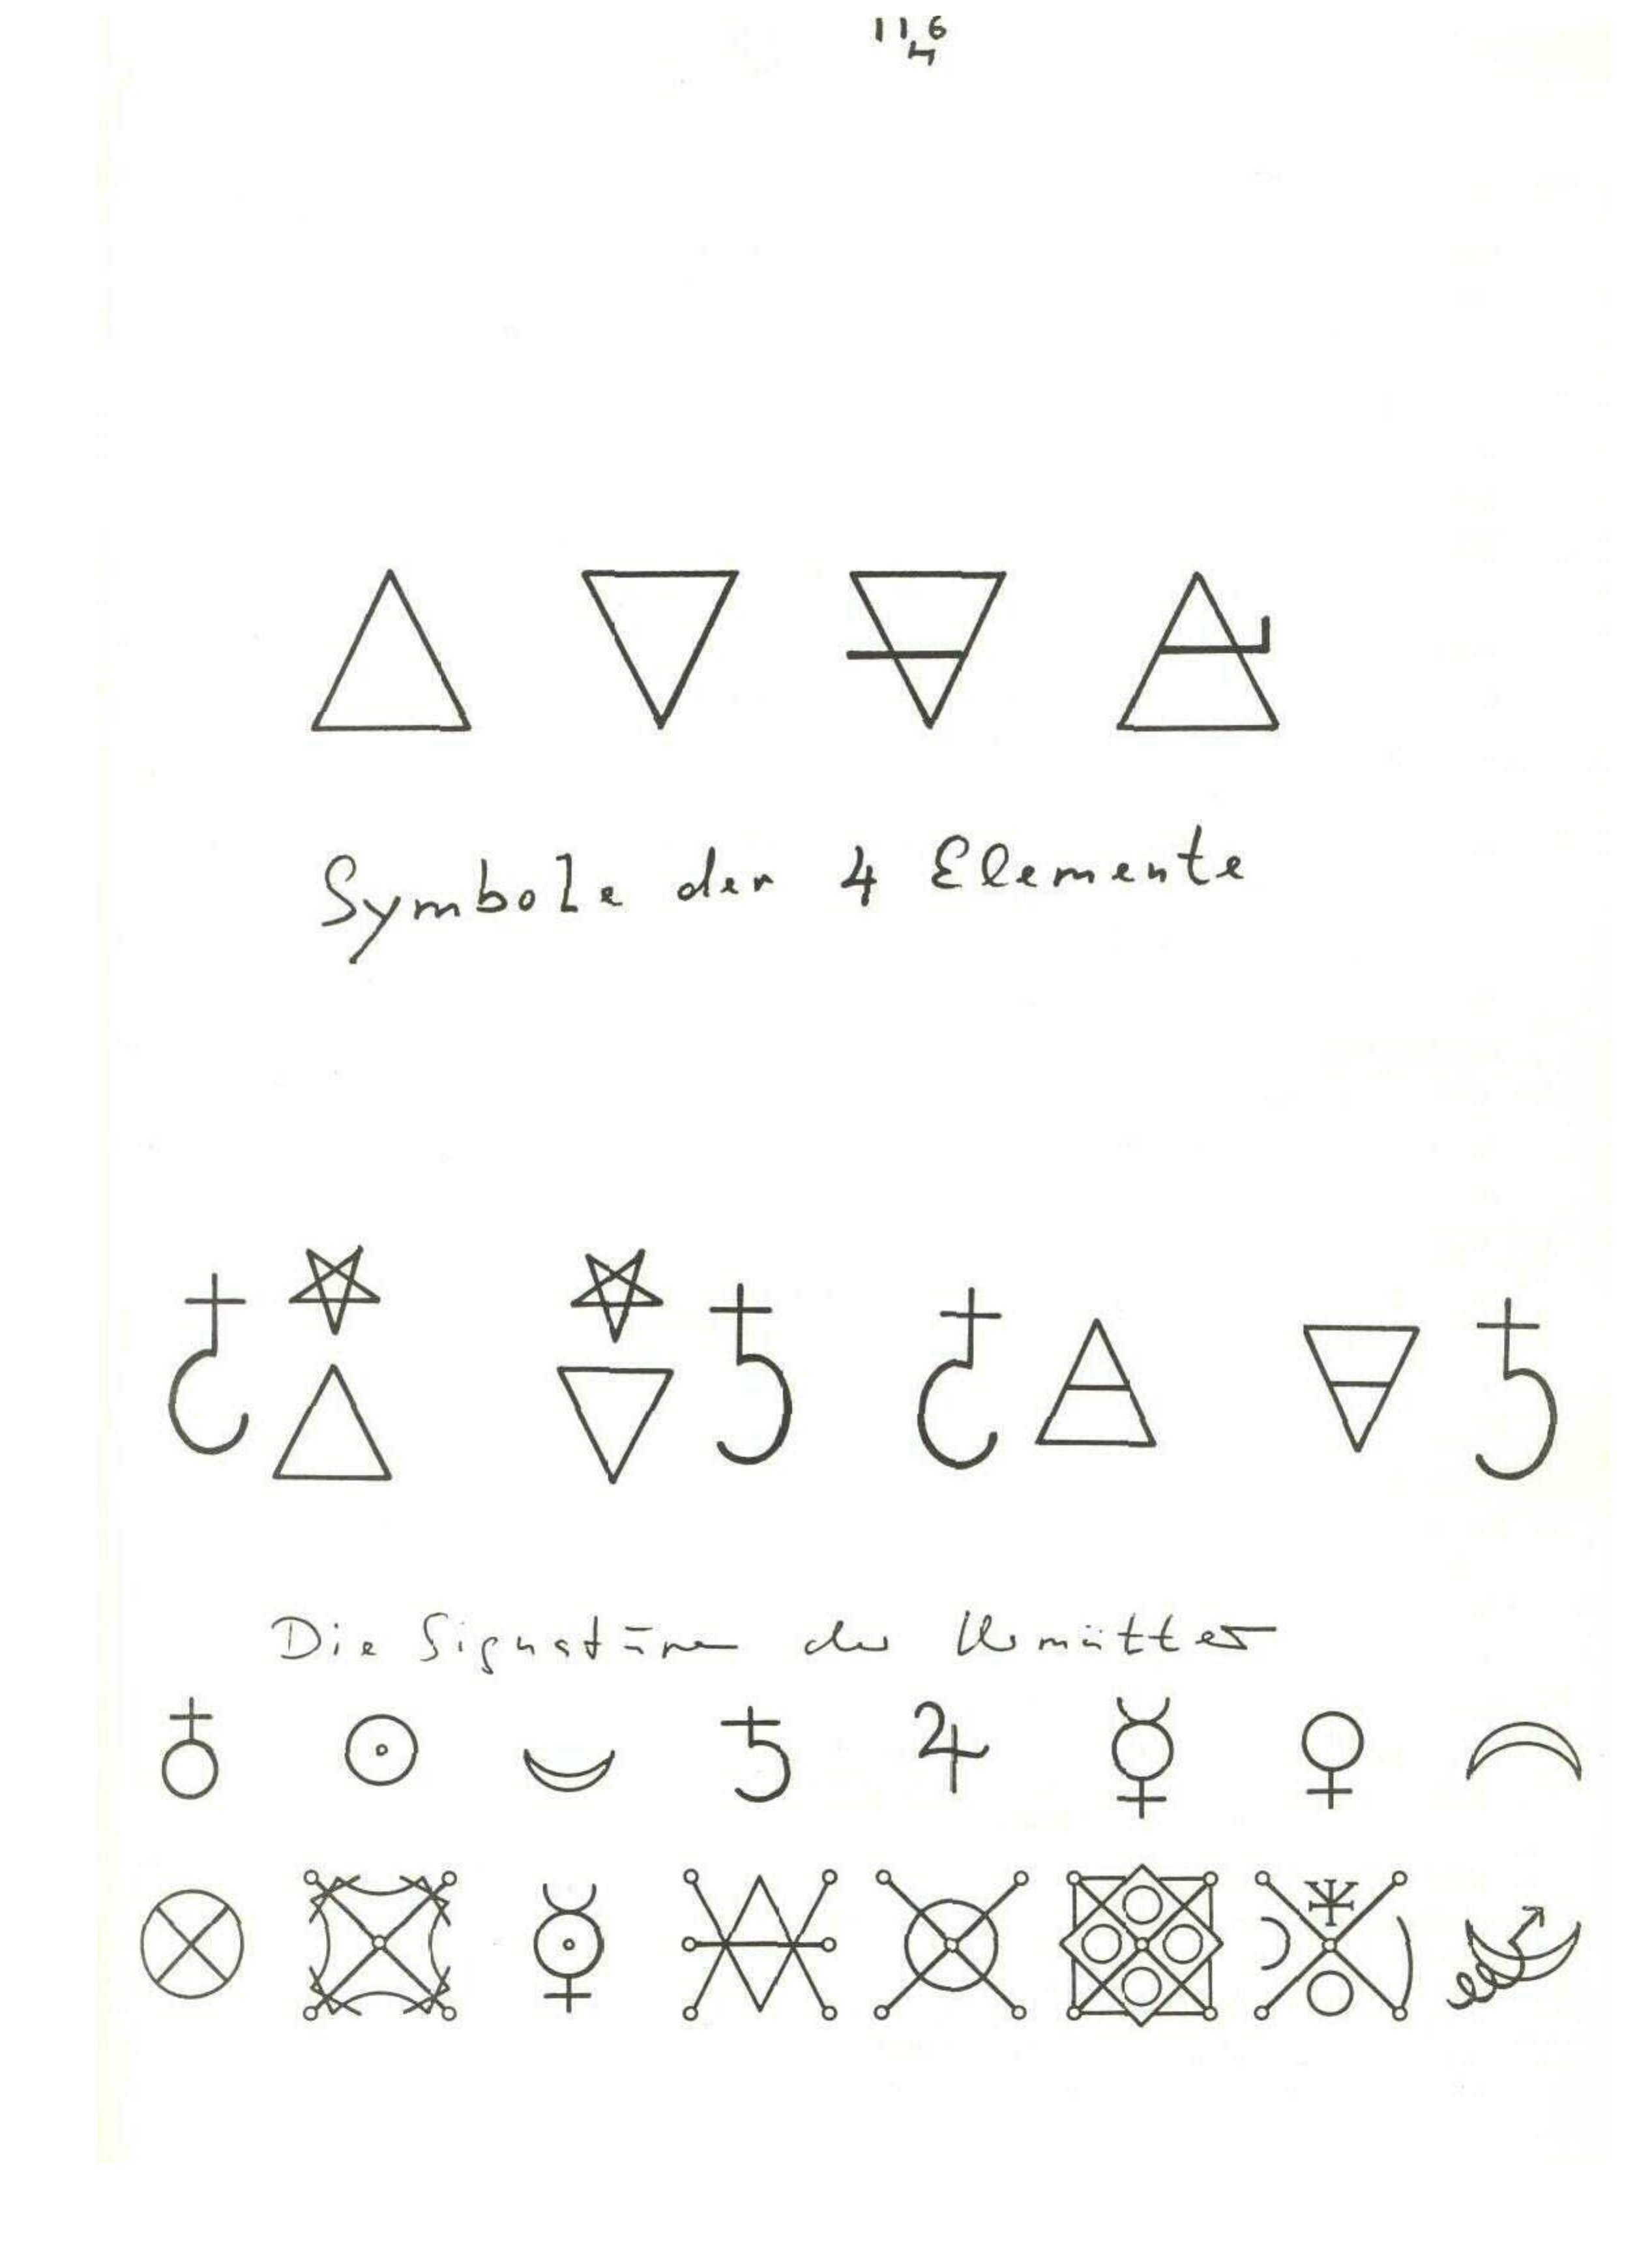 116
4
Symbole der 4 Elemente
Die Signaturen der Urmütter